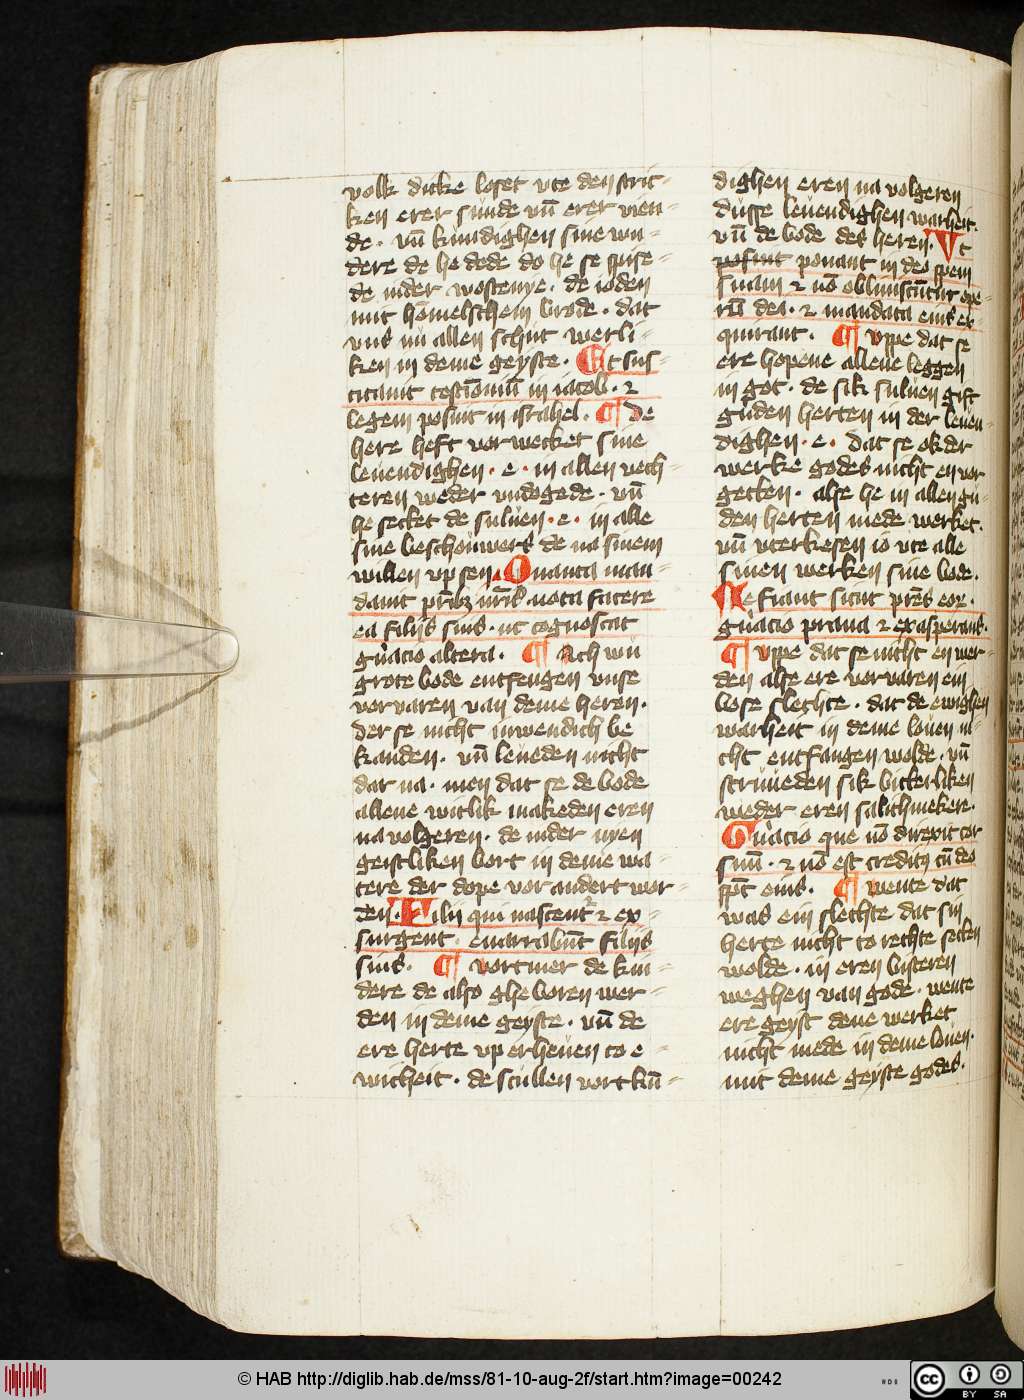 volk dicke loset vte den stric-
ken erer sunde vn̄ erer vien-
de · vn̄ kundighen sine wu-
dere de he dede do he se spise-
de inder wostenye · de ioden
mit hēmelschem brode · dat
vns nu allen schut werli-
ken in deme geyste · Et sus-
citauit testīoniū in iacob · ⁊
legem posuit in israhel · ¶ de
here heft vorwecket sine
leuendighen · e · in allen vech-
teren weder vndogede · vn̄
he secket de suluen · e · in alle
sine beschouwers de na sinem
willen vp sen · Quanta man-
dauit pr̄ibꝫ nr̄is nota facere
ea filijs suis · ut cognoscat
gn̄acio altera · ¶ Ach wu
grote bode entfengen vnse
vorvaren van deme heren ·
der se nicht inwendich be
kanden · vn̄ leueden nicht
dar na · men dat se de bode
allene witlik makeden eren
navolgeren · de inder nyen
geistliken bort in deme wa-
tere der dope vor andert wor-
den · Filij qui nascent᷑ ⁊ ex-
surgent · enarrabūt filijs
suis · ¶ vortmer de kin-
dere de also ghe boren wer-
den in deme geyste · vn̄ de
ere herte vp erheuen to e-
wicheit · de scullen vort kū-
dighen eren na volgeren
dusse leuendighen warheit ·
vn̄ de bode des heren · Vt
posuit ponant in deo spem
suam ⁊ nō obliuiscātur ope-
rū dei · ⁊ mandata eius ex
quirant · ¶ vppe dat se
ere hopene allene leggen
in got · de sik suluen gift
guden herten in der leuen-
dighen · e · dat se ok der
werke godes nicht en vor
getten · alse he in allen gu-
den herten mede werket ·
vn̄ vterkesen io vte alle
sinen werken sine bode ·
Ne fiant sicut pr̄es eoꝝ ·
gn̄acio praua ⁊ exasperans ·
¶ vppe dat se nicht en wer-
den alse ere vorvaren ein
bose slechte · dat de ewighen
warheit in deme louen ni-
cht entfangen wolde · vn̄
struueden sik bitterliken
weder eren salichmekere ·
Gn̄acio que nō direxit cor
suū · ⁊ nō est creditꝰ cū deo
sp̄c eius · ¶ wente dat
was ein slechte dat sin
herte nicht to rechte setten
wolde · in eren bisteren
weghen van gode · wente
ere geyst dene werket
nicht mede in deme louen ·
mit deme geyste godes ·
© HAB http://diglib.hab.de/mss/81-10-aug-2f/start.htm?image=00242
cc BY SA